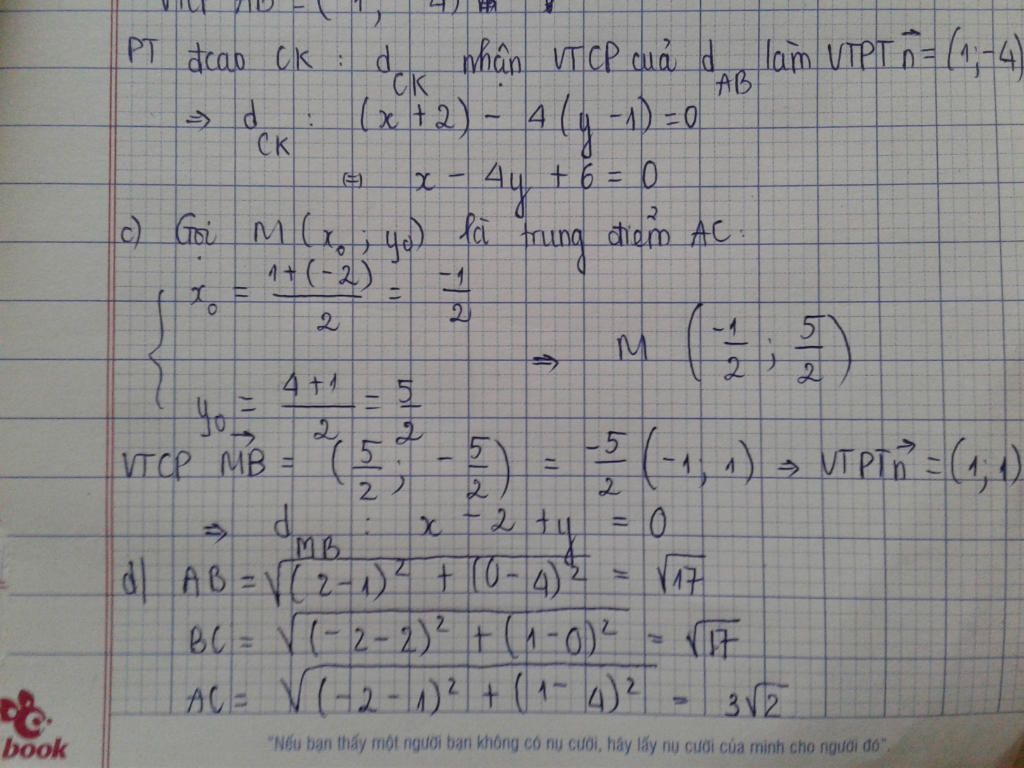 VTCP AB = (1; -4)
PT đcao CK : d_CK nhận VTCP của d_AB làm VTPT n⃗ = (1; -4)
⇒ d_CK : (x + 2) - 4(y - 1) = 0
⇔ x - 4y + 6 = 0
c) Gọi M(x₀; y₀) là trung điểm AC.
x₀ = (1 + (-2))/2 = -1/2
⇒ M (-1/2 ; 5/2)
y₀ = (4 + 1)/2 = 5/2
VTCP MB⃗ = (5/2 ; -5/2) = -5/2 (-1; 1) ⇒ VTPT n⃗ = (1; 1)
⇒ d_MB : x - 2 + y = 0
d) AB = √((2 - 1)² + (0 - 4)²) = √17
BC = √((-2 - 2)² + (1 - 0)²) = √17
AC = √((-2 - 1)² + (1 - 4)²) = 3√2
book
"Nếu bạn thấy một người bạn không có nụ cười, hãy lấy nụ cười của mình cho người đó".